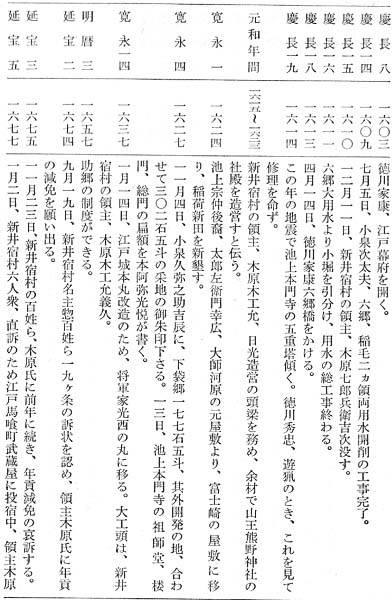 慶長八 一六〇三 徳川家康、江戸幕府を開く。
慶長一四 一六〇九 七月五日、小泉次太夫、六郷、稲毛二ヵ領両用水開削の工事完了。
慶長一五 一六一〇 一二月一一日、新井宿村の領主、木原七郎兵衛吉次没す。
慶長一六 一六一一 六郷大用水より小堀を引分け、用水の総工事終わる。
慶長一八 一六一三 四月一四日、徳川家康六郷橋をかける。
慶長一九 一六一四 この年の地震で池上本門寺の五重塔傾く。徳川秀忠、遊猟のとき、これを見て
修理を命ず。
元和年間 一六一五~一六二三 新井宿村の領主、木原木工允、日光造営の頭梁を務め、余材で山王熊野神社の
社殿を造営すと伝う。
寛永一 一六二四 池上宗仲後裔、太郎左衛門幸広、大師河原の元屋敷より、富士崎の屋敷に移
り、稲荷新田を新墾す。
寛永四 一六二七 一一月四日、小泉久弥之助吉辰に、下袋郷一七七石五斗、其外開発の地、合わ
せて三〇二石五斗の采地の御朱印下さる。一三日、池上本門寺の祖師堂、楼
門、総門の扁額を本阿弥光悦が書く。
寛永一四 一六三七 一月一四日、江戸城本丸改造のため、将軍家光西の丸に移る。大工頭は、新井
宿村の領主、木原木工允義久。
明暦三 一六五七 助郷の制度ができる。
延宝二 一六七四 九月一九日、新井宿村名主惣百姓ら一九ヶ条の訴状を認め、領主木原氏に年貢
の減免を願い出る。
延宝三 一六七五 一一月二三日、新井宿村の百姓ら、木原氏に前年に続き、年貢減免の哀訴する。
延宝五 一六七七 一月二日、新井宿村六人衆、直訴のため江戸馬喰町武蔵屋に投宿中、領主木原